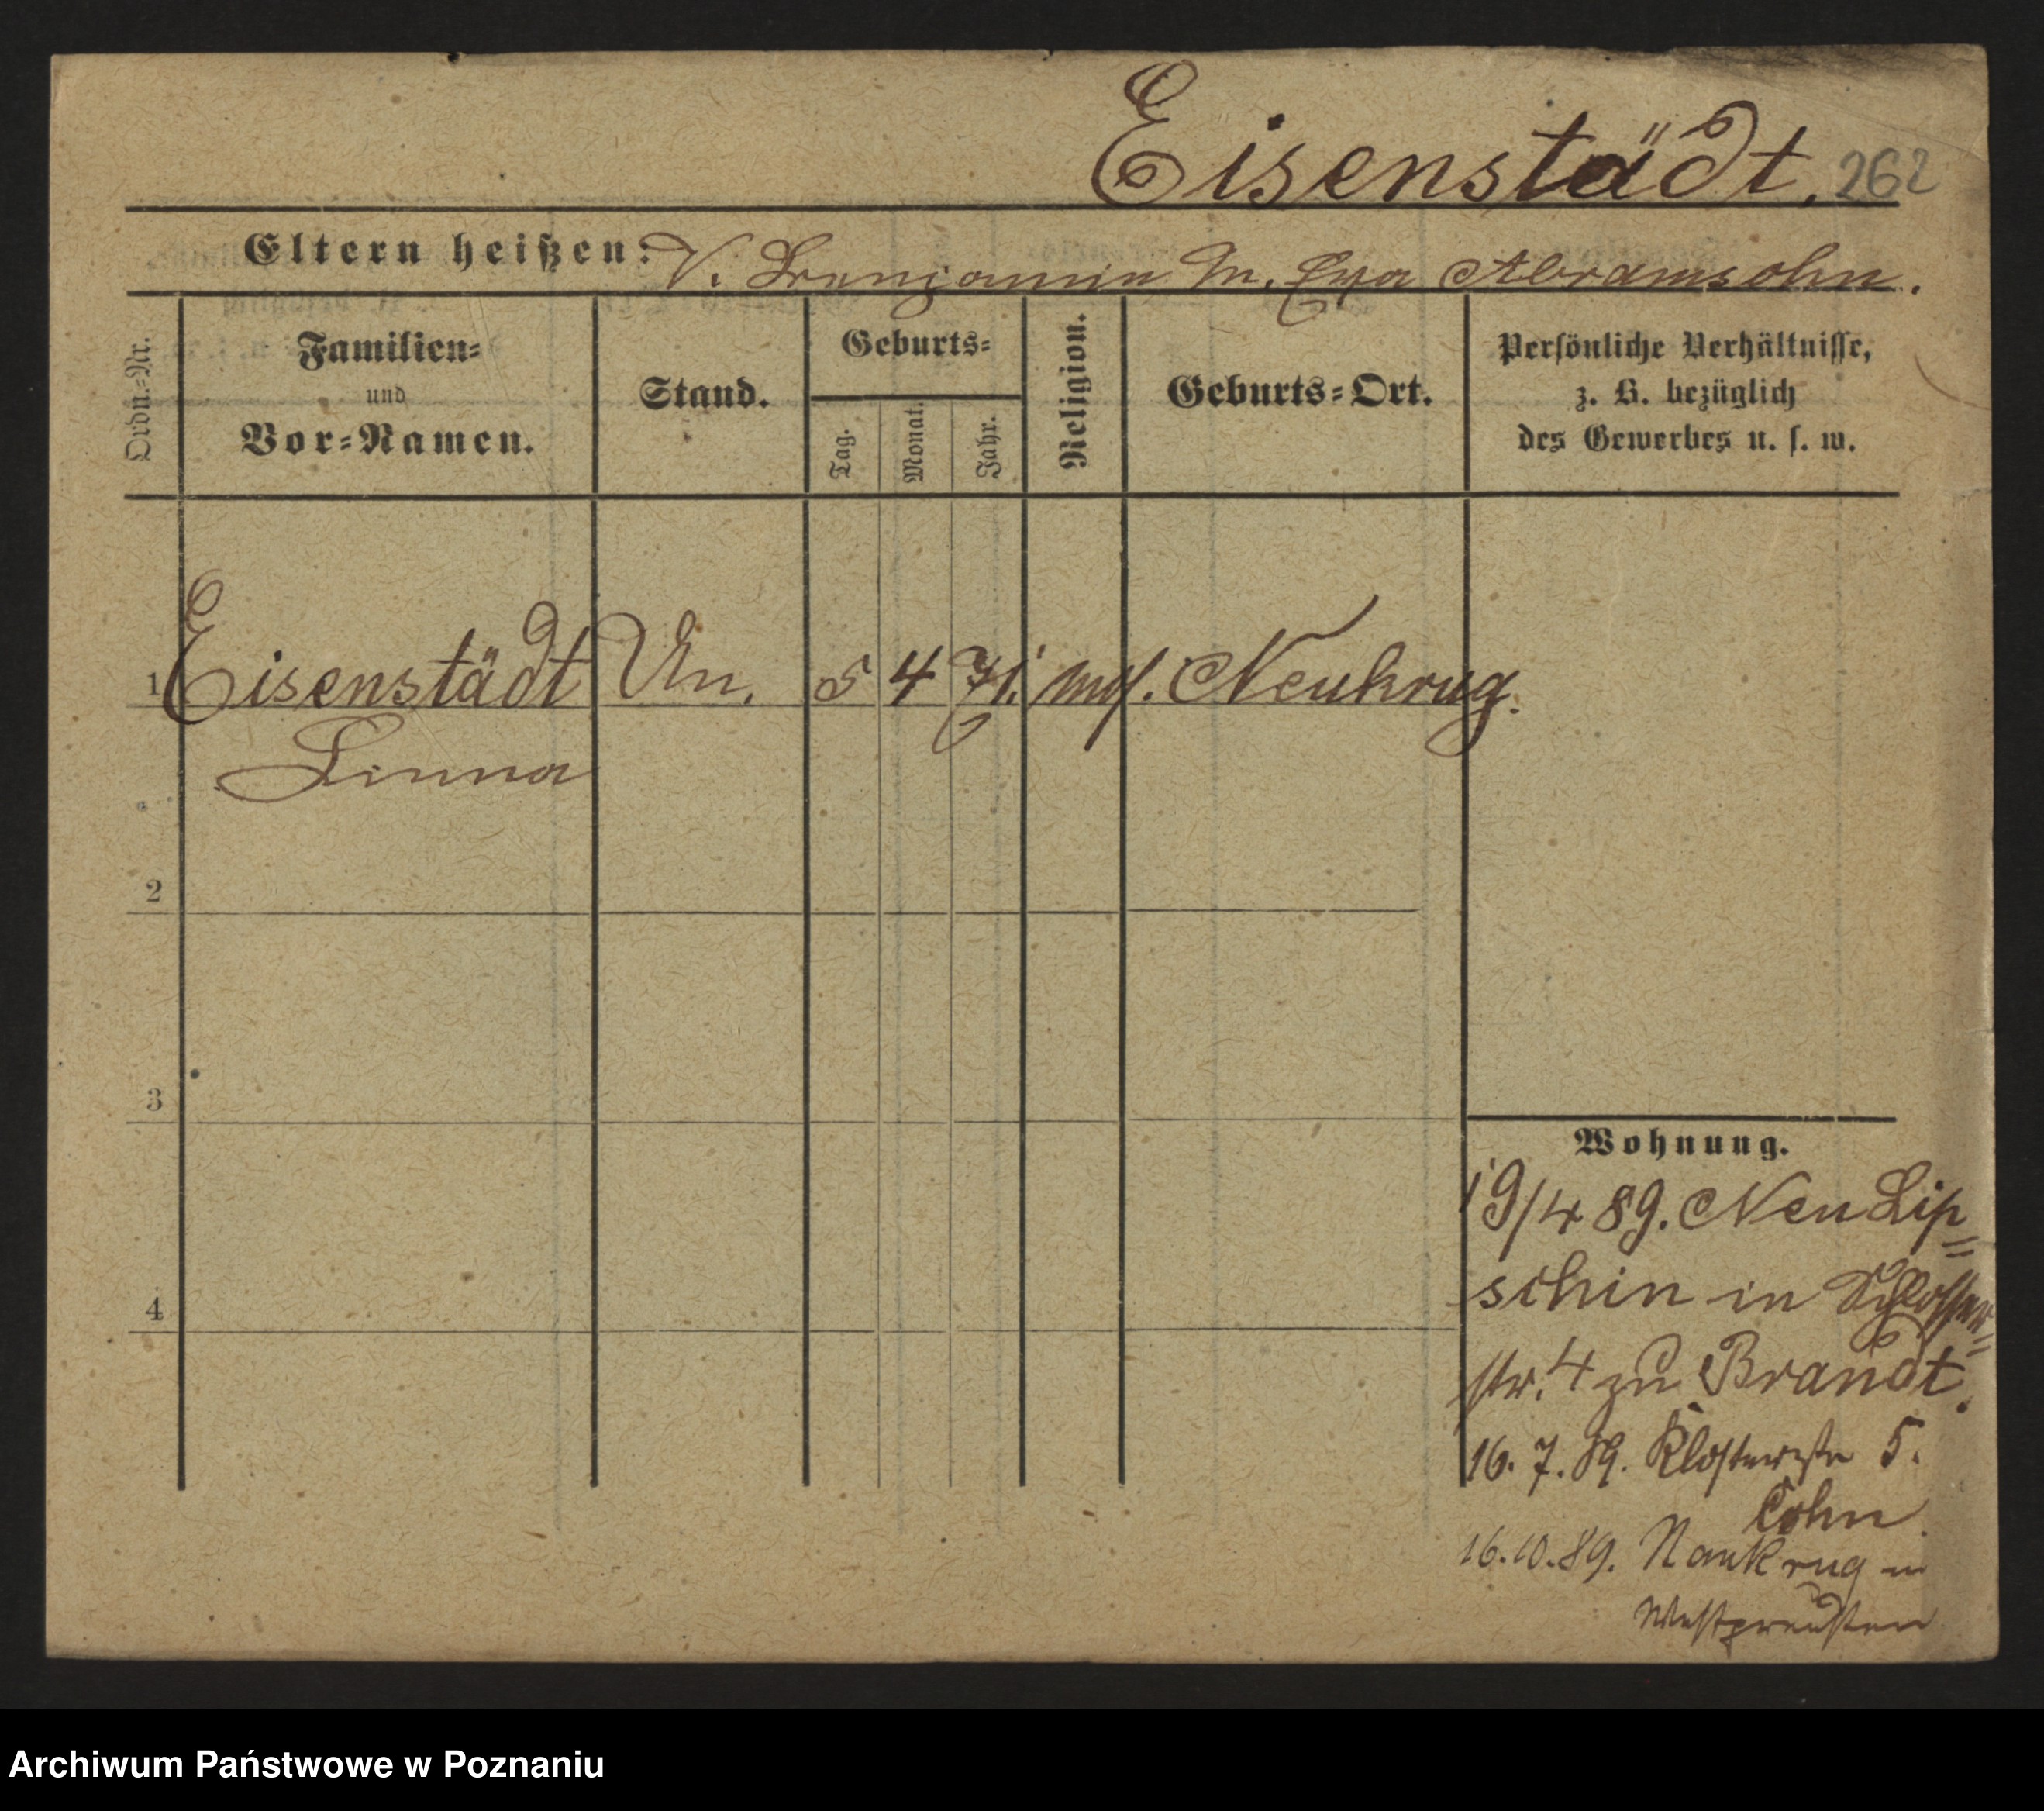 Eisenstädt. 262
Eltern heißen: V. Benjamin M. Eva Abramsohn.
Ordn.=Nr.
Familien=
und
Vor=Namen.
Stand.
Geburts=
Tag.
Monat.
Jahr.
Religion.
Geburts=Ort.
Persönliche Verhältnisse,
z. B. bezüglich
des Gewerbes u. s. w.
1 Eisenstädt Un. 5 4 71. mos. Neukrug.
Linna
2
3
4
Wohnung.
19/4 89. Neu Lip=
schin in Schlosser=
str. 4 zu Brandt.
16. 7. 89. Klosterstr 5.
Cohn
16.10.89. Neukrug in
Westpreußen
Archiwum Państwowe w Poznaniu